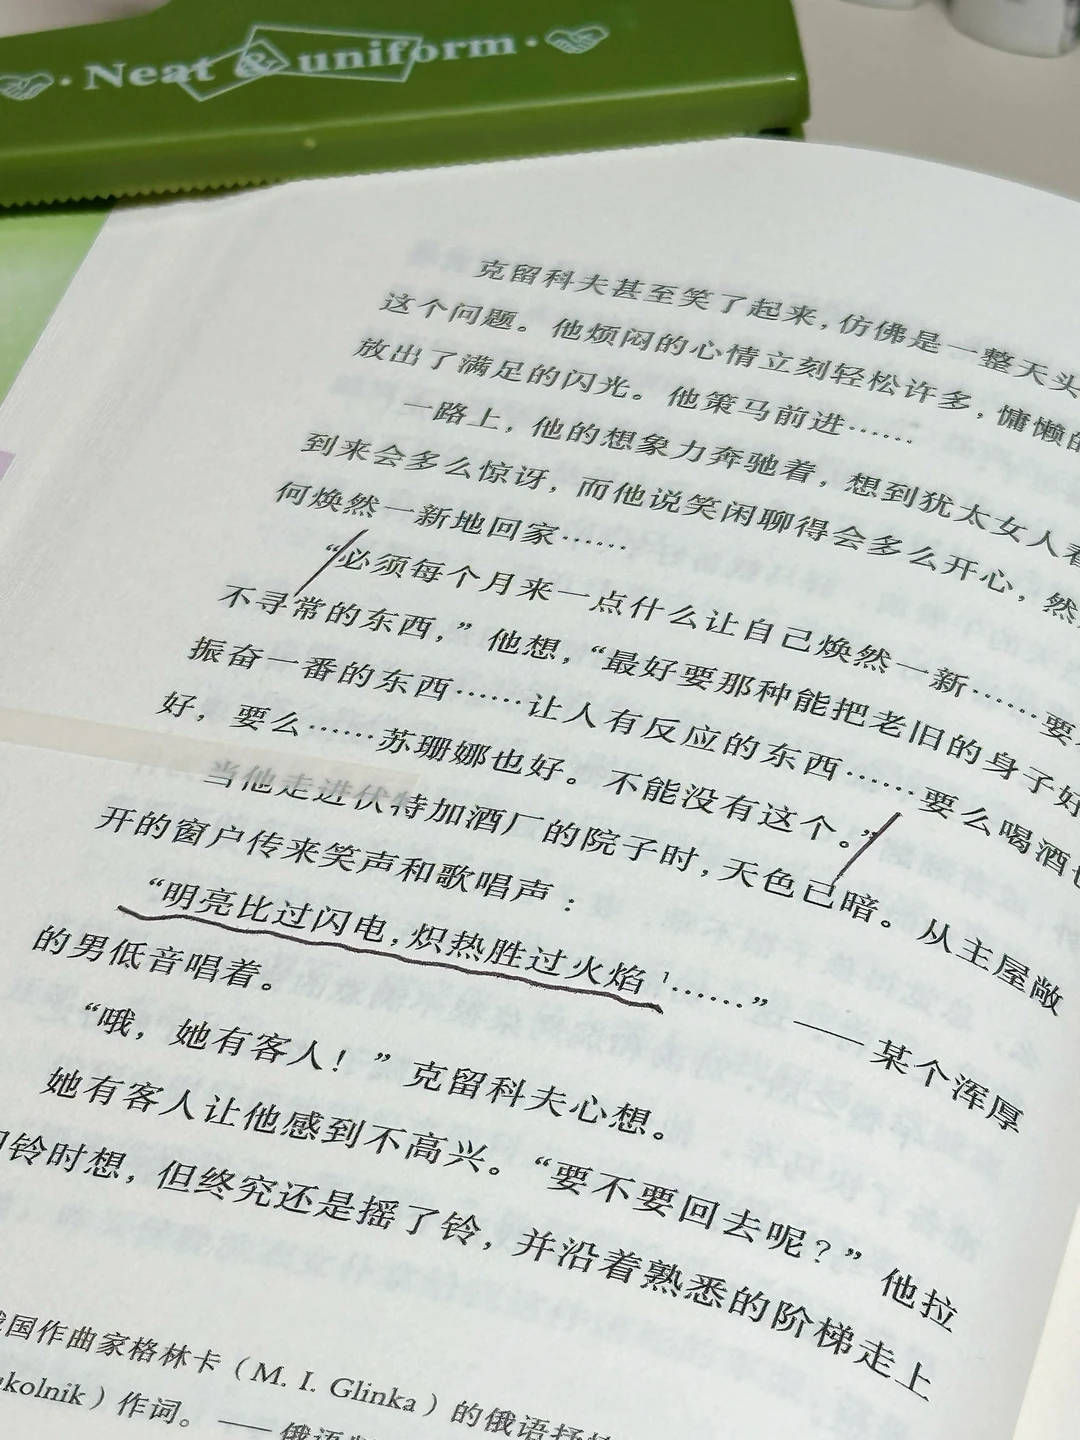 Neat & uniform
克留科夫甚至笑了起来，仿佛是一整天头
这个问题。他烦闷的心情立刻轻松许多，慵懒的
放出了满足的闪光。他策马前进……
一路上，他的想象力奔驰着，想到犹太女人看
到来会多么惊讶，而他说笑闲聊得会多么开心，然
何焕然一新地回家……
“必须每个月来一点什么让自己焕然一新……要
不寻常的东西，”他想，“最好要那种能把老旧的身子好
振奋一番的东西……让人有反应的东西……要么喝酒也
好，要么……苏珊娜也好。不能没有这个。”
当他走进伏特加酒厂的院子时，天色已暗。从主屋敞
开的窗户传来笑声和歌唱声：
“明亮比过闪电，炽热胜过火焰¹……”——某个浑厚
的男低音唱着。
“哦，她有客人！”克留科夫心想。
她有客人让他感到不高兴。“要不要回去呢？”他拉
铃时想，但终究还是摇了铃，并沿着熟悉的阶梯走上
国作曲家格林卡（M. I. Glinka）的俄语抒
kolnik）作词。——俄语